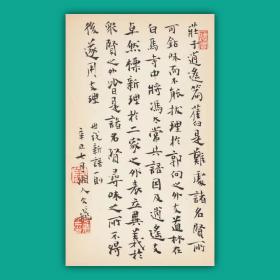 莊子逍遙篇舊是難處諸名賢所
可鑽味而不能拔理於郭向之外支道林在
白馬寺中將馮太常共語因及逍遙支
卓然標新理於二家之表立異義於
眾賢之外皆是諸名賢尋味之所不得
後遂用支理
世說新語一則
辛丑七月